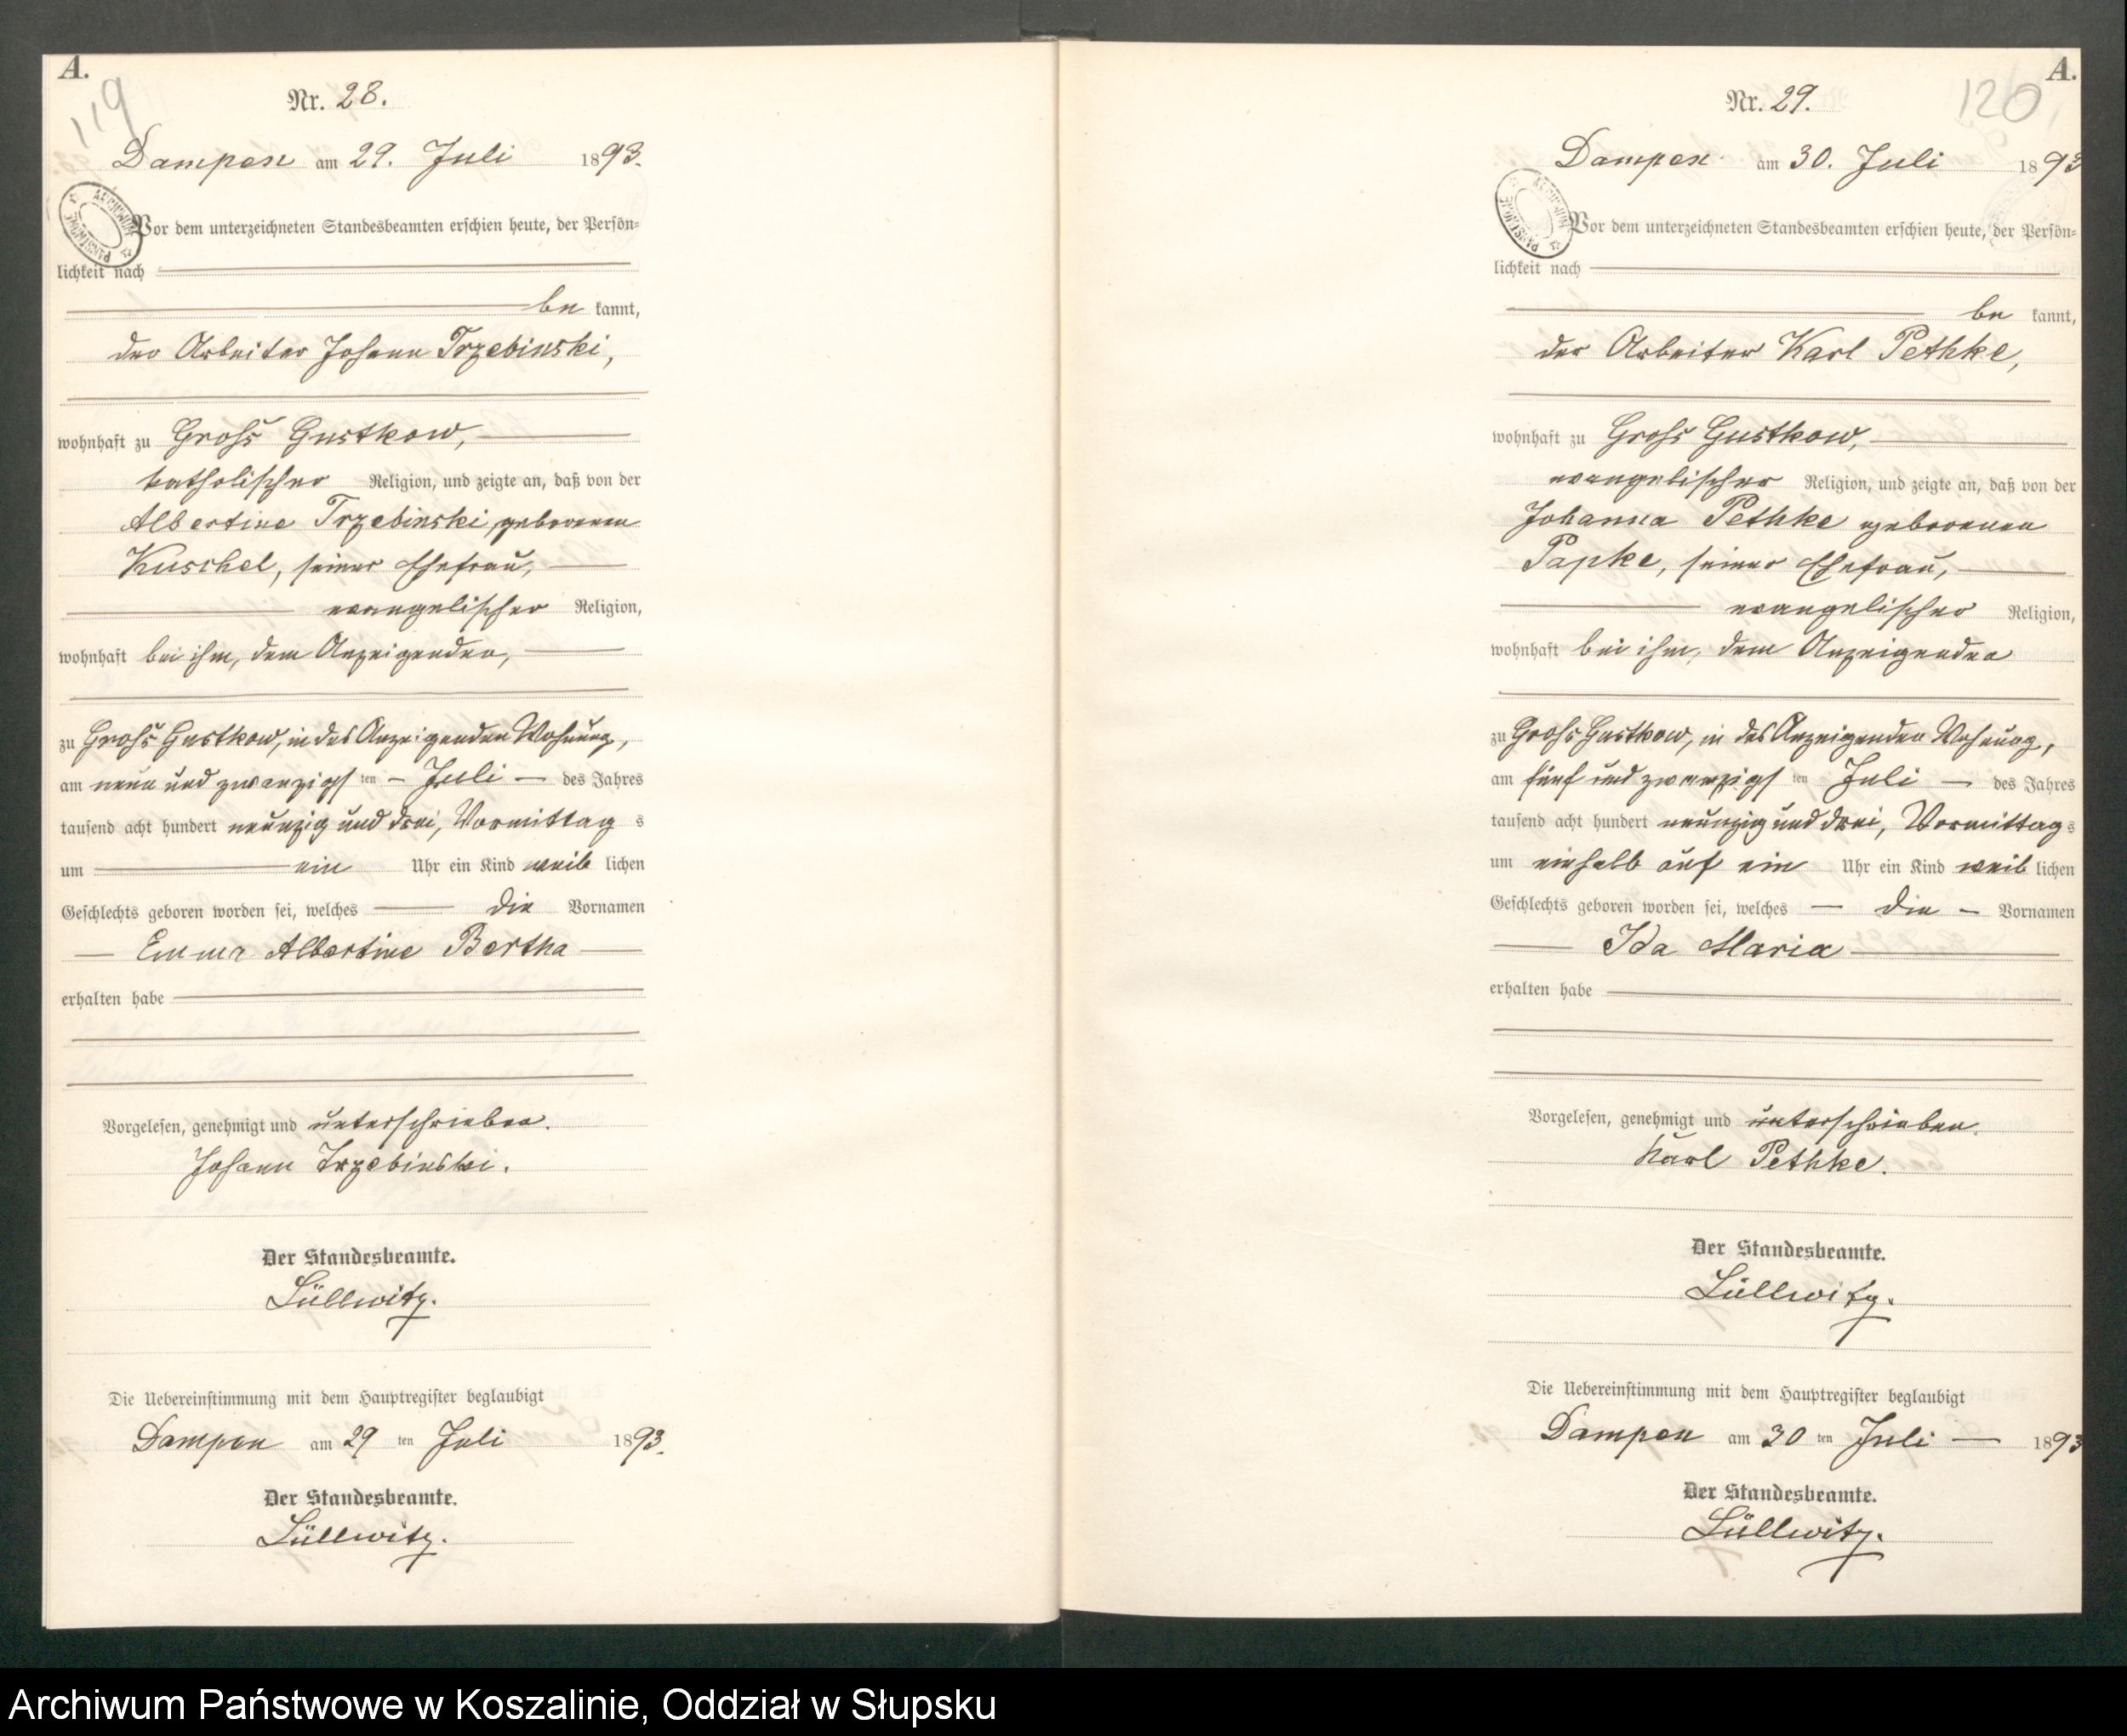 A.
119
Nr. 28.
Dampen am 29. Juli 1893.
ARCHIWUM PAŃSTWOWE
Vor dem unterzeichneten Standesbeamten erschien heute, der Persön=
lichkeit nach
be kannt,
der Arbeiter Johann Trzebinski,
wohnhaft zu Groß Gustkow,
katholischer Religion, und zeigte an, daß von der
Albertine Trzebinski, geborenen
Kuschel, seiner Ehefrau,
evangelischer Religion,
wohnhaft bei ihm, dem Anzeigenden,
zu Groß Gustkow, in des Anzeigenden Wohnung,
am neun und zwanzigs ten Juli des Jahres
tausend acht hundert neunzig und drei, Vormittag s
um ein Uhr ein Kind weib lichen
Geschlechts geboren worden sei, welches die Vornamen
Emma Albertine Bertha
erhalten habe
Vorgelesen, genehmigt und unterschrieben.
Johann Trzebinski.
Der Standesbeamte.
Lüllwitz.
Die Uebereinstimmung mit dem Hauptregister beglaubigt
Dampen am 29 ten Juli 1893.
Der Standesbeamte.
Lüllwitz.
A.
120
Nr. 29.
Dampen am 30. Juli 1893
ARCHIWUM PAŃSTWOWE
Vor dem unterzeichneten Standesbeamten erschien heute, der Persön=
lichkeit nach
be kannt,
der Arbeiter Karl Pethke,
wohnhaft zu Groß Gustkow,
evangelischer Religion, und zeigte an, daß von der
Johanna Pethke geborenen
Papke, seiner Ehefrau,
evangelischer Religion,
wohnhaft bei ihm, dem Anzeigenden
zu Groß Gustkow, in des Anzeigenden Wohnung,
am fünf und zwanzigs ten Juli des Jahres
tausend acht hundert neunzig und drei, Vormittag s
um einhalb auf ein Uhr ein Kind weib lichen
Geschlechts geboren worden sei, welches die Vornamen
Ida Maria
erhalten habe
Vorgelesen, genehmigt und unterschrieben.
Karl Pethke.
Der Standesbeamte.
Lüllwitz.
Die Uebereinstimmung mit dem Hauptregister beglaubigt
Dampen am 30 ten Juli 1893
Der Standesbeamte.
Lüllwitz.
Archiwum Państwowe w Koszalinie, Oddział w Słupsku